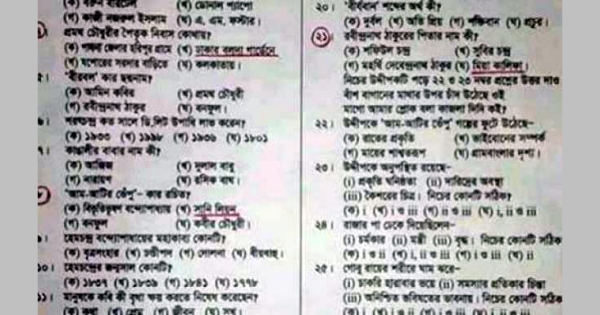 (ক) বরুন বায়টেল (খ) ডোনাল প্যাপো
(গ) কাজী নজরুল ইসলাম (ঘ) এ. এম. ফস্টার।
প্রমথ চৌধুরীর পৈতৃক নিবাস কোথায়?
(ক) পাবনা জেলার হরিপুর গ্রামে (খ) ঢাকার বলদা গার্ডেনে
(গ) যশোরের সদরে বাড়িতে (ঘ) কলকাতায়।
৫। 'বীরবল' কার ছদ্মনাম?
(ক) আমিন কবির (খ) প্রমথ চৌধুরী
(গ) রবীন্দ্রনাথ ঠাকুর (ঘ) বনফুল।
৬। শরৎচন্দ্র কত সালে ডি.লিট উপাধি লাভ করেন?
(ক) ১৯৩৩ (খ) ১৯৯৮ (গ) ১৯৩৬ (ঘ) ১৮০১
৭। কাঙালীর বাবার নাম কী?
(ক) আজিজ (খ) দুলাল বাবু
(গ) নারায়ণ (ঘ) রসিক বাঘ।
'আম-আঁটির ভেঁপু' - কার রচিত?
(ক) বিভূতিভূষণ বন্দ্যোপাধ্যায় (খ) সানি লিয়ন
(গ) বনফুল (ঘ) কবীর চৌধুরী।
৯। হেমচন্দ্র বন্দ্যোপাধ্যায়ের মহাকাব্য কোনটি?
(ক) বৃত্রসংহার (খ) চণ্ডীপল (গ) লোলনা (ঘ) বীরবাহু।
১০। হেমচন্দ্রের জন্মসাল কোনটি?
(ক) ১৮৩৭ (খ) ১৮৩৯ (গ) ১৮৪১ (ঘ) ১৭৭৮
১১। মানুষকে কবি কী বৃথা ক্ষয় করতে নিষেধ করেছেন?
(ক) কথা (খ) প্রেম (গ) জীবন (ঘ) সুখ।
২০। 'বীর্যবান' শব্দের অর্থ কী?
(ক) দুর্বল (খ) অতি প্রিয় (গ) শক্তিবান (ঘ) প্রচুর।
২১। রবীন্দ্রনাথ ঠাকুরের পিতার নাম কী?
(ক) শফিউল চন্দ্র (খ) সুবির চন্দ্র
(গ) মহর্ষি দেবেন্দ্রনাথ ঠাকুর (ঘ) মিয়া কালিফা।
নিচের উদ্দীপকটি পড়ে ২২ ও ২৩ নম্বর প্রশ্নের উত্তর দাও
বাঁশ বাগানের মাথার উপর চাঁদ উঠেছে ওই
মাগো আমার শ্লোক বলা কাজলা দিদি কই?
২২। উদ্দীপকে 'আম-আঁটির ভেঁপু' গল্পের ফুটে উঠেছে-
(ক) রাতের প্রকৃতি (খ) ভাইবোনের সম্পর্ক
(গ) মায়ের শাশ্বতরূপ (ঘ) গ্রামবাংলার দৃশ্য।
২৩। উদ্দীপকে অনুপস্থিত রয়েছে-
(i) প্রকৃতি ঘনিষ্ঠতা (ii) দারিদ্রের অবস্থা
(iii) কৈশরের চিত্র। নিচের কোনটি সঠিক?
(ক) i (খ) i ও iii (গ) ii ও iii (ঘ) i, ii ও iii
২৪। রাজার পা ঢেকে দিয়েছিলেন-
(i) চর্মকার (ii) মন্ত্রী (iii) বৃদ্ধ। নিচের কোনটি সঠিক
(ক) i ও ii (খ) i, ii ও iii (গ) i ও iii (ঘ) ii ও iii
২৫। গোবু রায়ের শরীরে ঘাম করে-
(i) চাকরি হারাবার ভয়ে (ii) সমস্যার প্রতিকার চিন্তা
(iii) অনিশ্চিত ভবিষ্যতের ভাবনায়। নিচের কোনটি সঠিক
(ক) i (খ) i ও ii (গ) ii ও iii (ঘ) i, ii ও iii